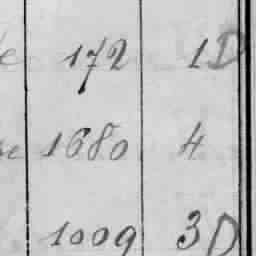 172 1D
1680 4
1009 3D